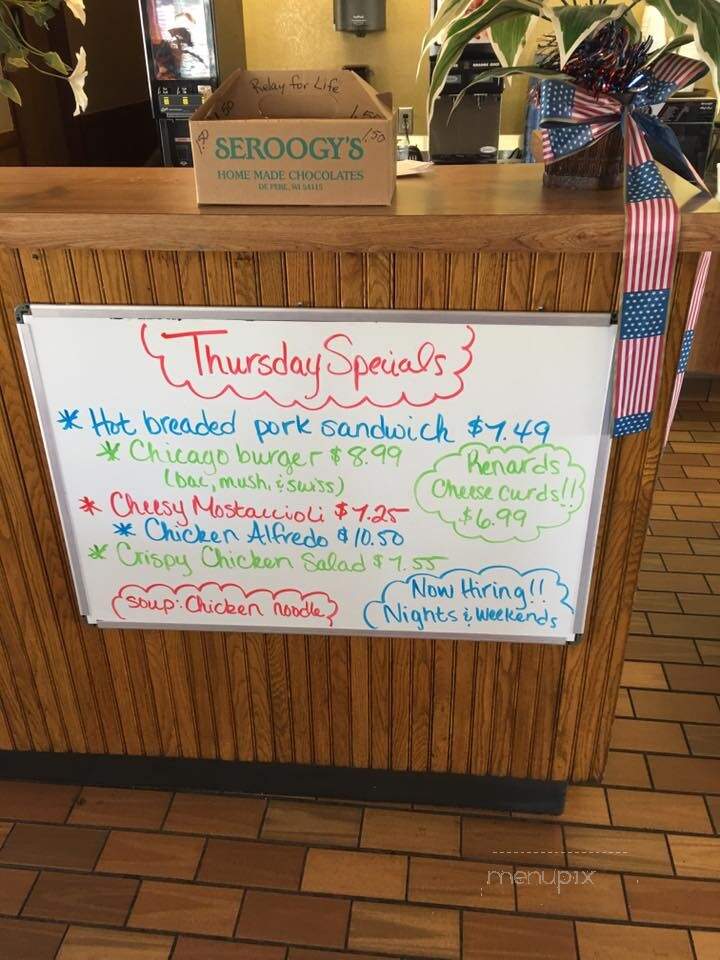 Relay for Life
1.50
1.50
1.50
SEROOGY'S
HOME MADE CHOCOLATES
DE PERE, WI 54115
Thursday Specials
* Hot breaded pork sandwich $7.49
* Chicago burger $8.99
(bac, mush, & swiss)
Renards
Cheese curds!!
$6.99
* Cheesy Mostaccioli $7.25
* Chicken Alfredo $10.50
* Crispy Chicken Salad $7.55
soup: Chicken noodle
Now Hiring!!
Nights & Weekends
menupix